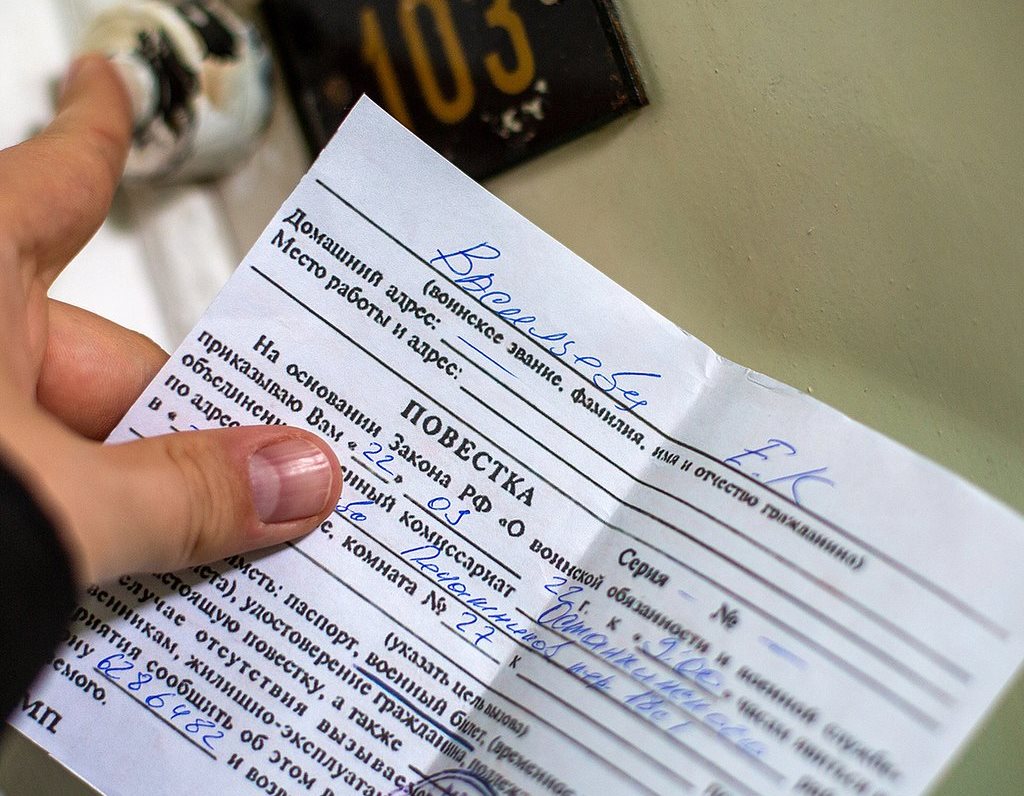 103
Васильеву Е.К
(воинское звание, фамилия, имя и отчество гражданина)
Домашний адрес:
Место работы и адрес:
ПОВЕСТКА
Серия - №
На основании Закона РФ «О воинской обязанности и военной службе»
приказываю Вам «22» 03 22 г. к «9.00» часам явиться в
объединенный комиссариат Останкинского
по адресу
в « с. комната № 27 к
(указать цель вызова)
иметь: паспорт, военный билет, (временное
удостоверение гражданина, подлежа
настоящую повестку, а также
случае отсутствия вызывае
венникам, жилищно-эксплуата
приятия сообщить об этом
ну 6286482 и возв
емого.
МП